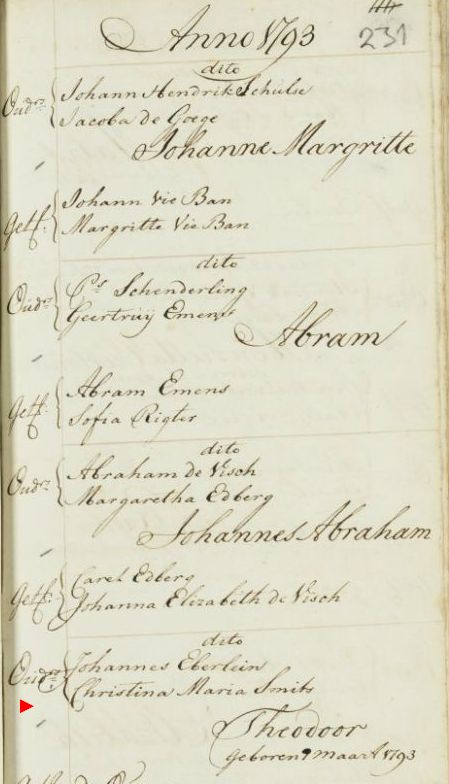 Anno 1793
231
dito
Oud.rs Johann Hendrik Schulse
Jacoba de Goege
Johanne Margritte
Getf: Johann Vie Ban
Margritte Vie Ban
dito
Oud.rs P.s Schenderling
Geertruy Emens
Abram
Getf: Abram Emens
Sofia Rigter
dito
Oud.rs Abraham de Visch
Margaretha Edberg
Johannes Abraham
Getf: Carel Edberg
Johanna Elizabeth de Visch
dito
Oud.rs Johannes Eberlein
Christina Maria Smits
Theodoor
Geboren 9 maart 1793